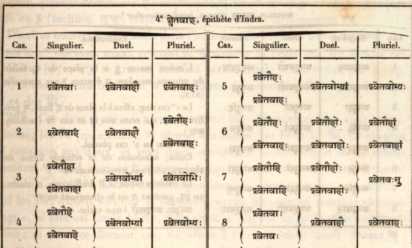 4° श्वेतवाह्, épithète d'Indra.
Cas. Singulier. Duel. Pluriel. Cas. Singulier. Duel. Pluriel.
1 श्वेतवाः श्वेतवाहौ श्वेतवाहः
2 श्वेतवाहं श्वेतवाहौ श्वेतौहः
श्वेतवाहः
3 श्वेतौहा श्वेतवोभ्यां श्वेतवोभिः
श्वेतवाहा
4 श्वेतौहे श्वेतवोभ्यां श्वेतवोभ्यः
श्वेतवाहे
5 श्वेतौहः श्वेतवोभ्यां श्वेतवोभ्यः
श्वेतवाहः
6 श्वेतौहः श्वेतौहोः श्वेतौहां
श्वेतवाहः श्वेतवाहोः श्वेतवाहां
7 श्वेतौहि श्वेतौहोः श्वेतवःसु
श्वेतवाहि श्वेतवाहोः
8 श्वेतवाः श्वेतवाहौ श्वेतवाहः
श्वेतवः